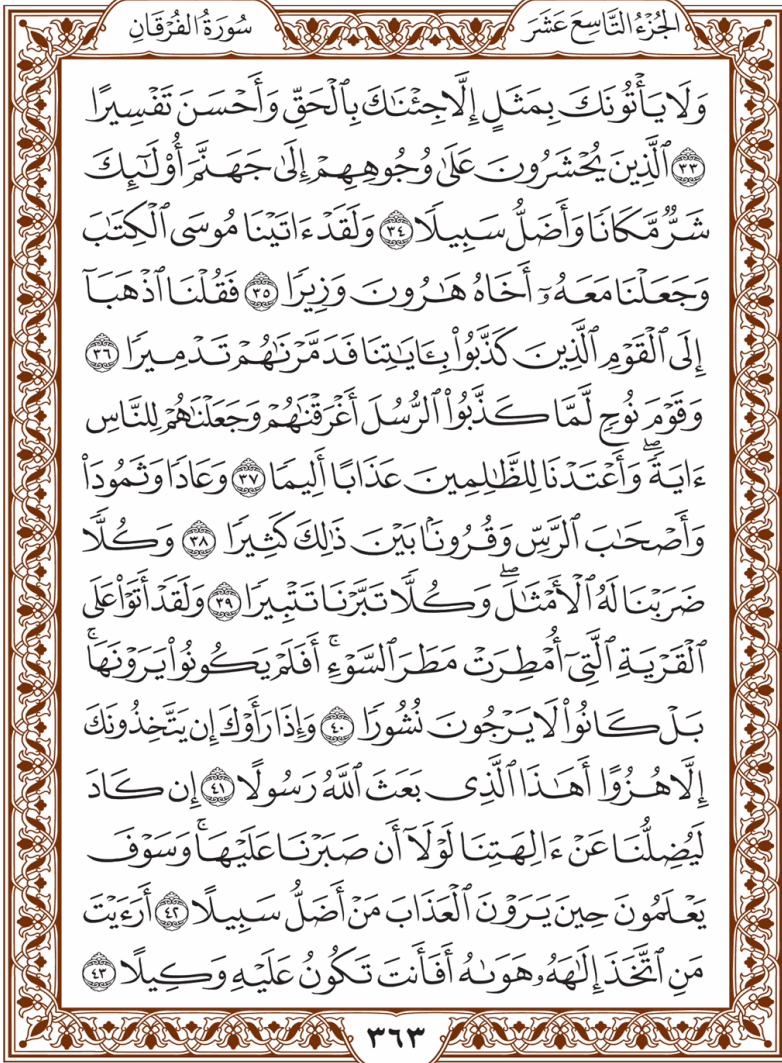 الجُزْءُ التَّاسِعَ عَشَرَ
سُورَةُ الفُرْقَانِ
وَلَا يَأْتُونَكَ بِمَثَلٍ إِلَّا جِئْنَٰكَ بِٱلْحَقِّ وَأَحْسَنَ تَفْسِيرًا
٣٣ ٱلَّذِينَ يُحْشَرُونَ عَلَىٰ وُجُوهِهِمْ إِلَىٰ جَهَنَّمَ أُو۟لَـٰٓئِكَ
شَرٌّ مَّكَانًا وَأَضَلُّ سَبِيلًا ٣٤ وَلَقَدْ ءَاتَيْنَا مُوسَى ٱلْكِتَٰبَ
وَجَعَلْنَا مَعَهُۥٓ أَخَاهُ هَٰرُونَ وَزِيرًا ٣٥ فَقُلْنَا ٱذْهَبَآ
إِلَى ٱلْقَوْمِ ٱلَّذِينَ كَذَّبُوا۟ بِـَٔايَٰتِنَا فَدَمَّرْنَٰهُمْ تَدْمِيرًا ٣٦
وَقَوْمَ نُوحٍ لَّمَّا كَذَّبُوا۟ ٱلرُّسُلَ أَغْرَقْنَٰهُمْ وَجَعَلْنَٰهُمْ لِلنَّاسِ
ءَايَةً ۖ وَأَعْتَدْنَا لِلظَّٰلِمِينَ عَذَابًا أَلِيمًا ٣٧ وَعَادًا وَثَمُودَا۟
وَأَصْحَٰبَ ٱلرَّسِّ وَقُرُونًۢا بَيْنَ ذَٰلِكَ كَثِيرًا ٣٨ وَكُلًّا
ضَرَبْنَا لَهُ ٱلْأَمْثَٰلَ ۖ وَكُلًّا تَبَّرْنَا تَتْبِيرًا ٣٩ وَلَقَدْ أَتَوْا۟ عَلَى
ٱلْقَرْيَةِ ٱلَّتِىٓ أُمْطِرَتْ مَطَرَ ٱلسَّوْءِ ۚ أَفَلَمْ يَكُونُوا۟ يَرَوْنَهَا ۚ
بَلْ كَانُوا۟ لَا يَرْجُونَ نُشُورًا ٤٠ وَإِذَا رَأَوْكَ إِن يَتَّخِذُونَكَ
إِلَّا هُزُوًا أَهَٰذَا ٱلَّذِى بَعَثَ ٱللَّهُ رَسُولًا ٤١ إِن كَادَ
لَيُضِلُّنَا عَنْ ءَالِهَتِنَا لَوْلَآ أَن صَبَرْنَا عَلَيْهَا ۚ وَسَوْفَ
يَعْلَمُونَ حِينَ يَرَوْنَ ٱلْعَذَابَ مَنْ أَضَلُّ سَبِيلًا ٤٢ أَرَءَيْتَ
مَنِ ٱتَّخَذَ إِلَٰهَهُۥ هَوَىٰهُ أَفَأَنتَ تَكُونُ عَلَيْهِ وَكِيلًا ٤٣
٣٦٣